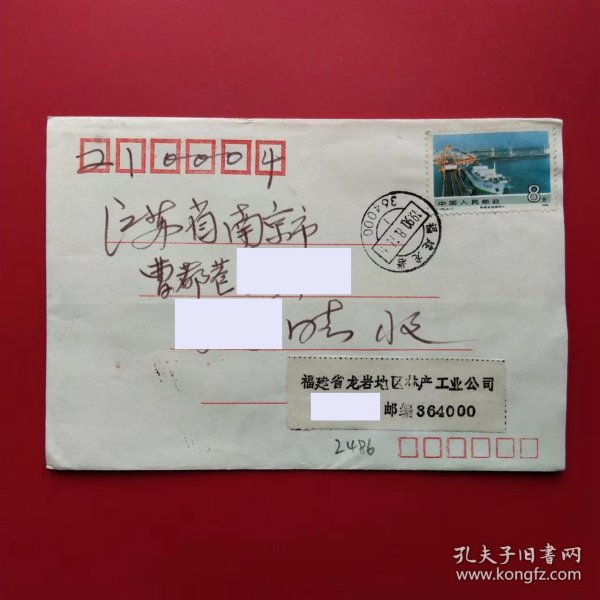 210004
江苏省南京市
曹都巷
收
中国人民邮政
8分
364000
1990.8.11
福建龙岩
福建省龙岩地区林产工业公司
邮编364000
2486
孔夫子旧书网
www.kongfz.com